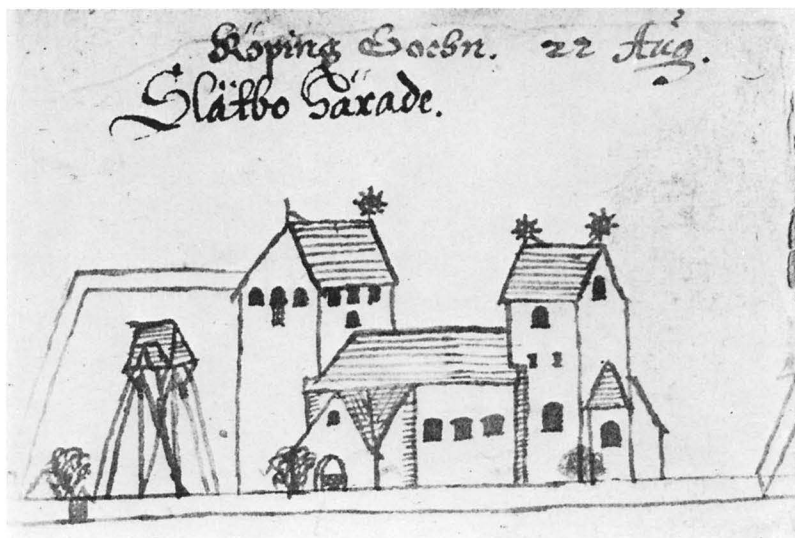 Köping Sochn. 22 Aug.
Slätbo Härade.